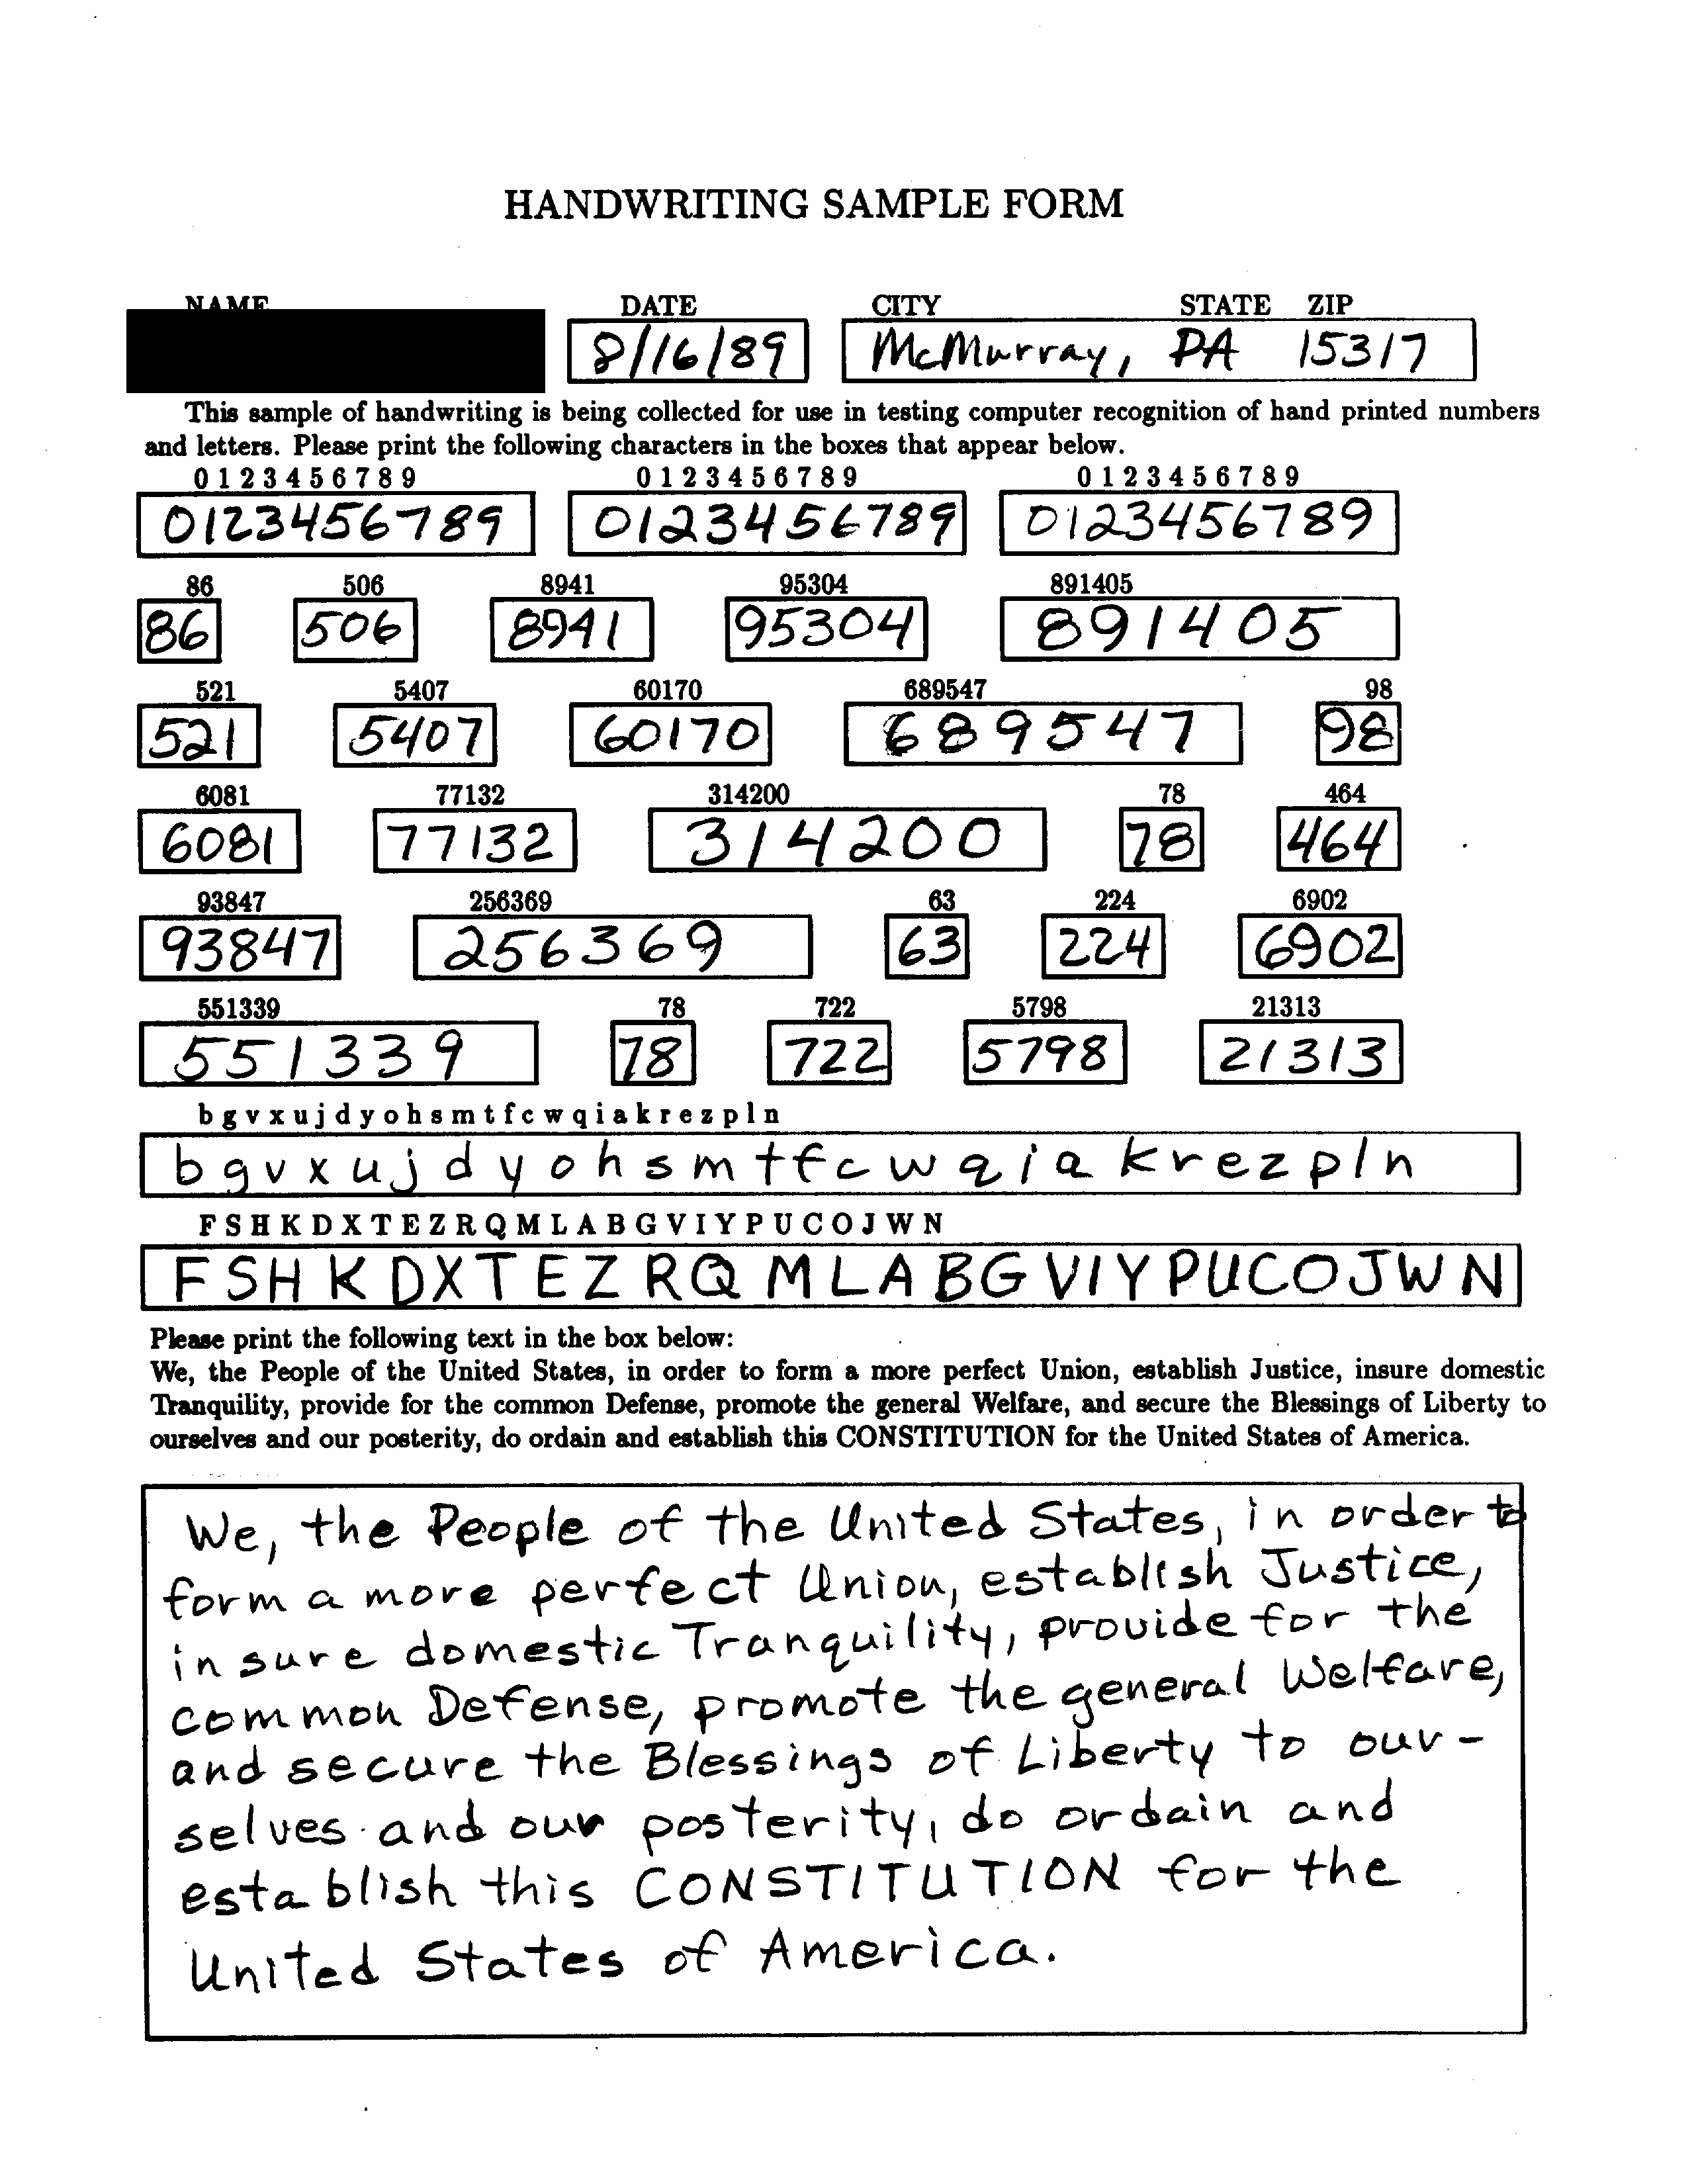 HANDWRITING SAMPLE FORM
NAME DATE CITY STATE ZIP
8/16/89 McMurray, PA 15317
This sample of handwriting is being collected for use in testing computer recognition of hand printed numbers
and letters. Please print the following characters in the boxes that appear below.
0 1 2 3 4 5 6 7 8 9 0 1 2 3 4 5 6 7 8 9 0 1 2 3 4 5 6 7 8 9
0123456789 0123456789 0123456789
86 506 8941 95304 891405
86 506 8941 95304 891405
521 5407 60170 689547 98
521 5407 60170 689547 98
6081 77132 314200 78 464
6081 77132 314200 78 464
93847 256369 63 224 6902
93847 256369 63 224 6902
551339 78 722 5798 21313
551339 78 722 5798 21313
b g v x u j d y o h s m t f c w q i a k r e z p l n
b g v x u j d y o h s m t f c w q i a k r e z p l n
F S H K D X T E Z R Q M L A B G V I Y P U C O J W N
F S H K D X T E Z R Q M L A B G V I Y P U C O J W N
Please print the following text in the box below:
We, the People of the United States, in order to form a more perfect Union, establish Justice, insure domestic
Tranquility, provide for the common Defense, promote the general Welfare, and secure the Blessings of Liberty to
ourselves and our posterity, do ordain and establish this CONSTITUTION for the United States of America.
We, the People of the United States, in order to
form a more perfect Union, establish Justice,
insure domestic Tranquility, provide for the
common Defense, promote the general Welfare,
and secure the Blessings of Liberty to our-
selves and our posterity, do ordain and
establish this CONSTITUTION for the
United States of America.